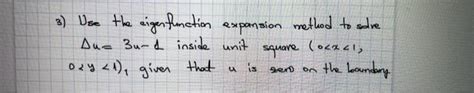 3) Use the eigenfunction expansion method to solve
Δu = 3u-1 inside unit square (0<x<1,
0<y<1), given that u is zero on the boundary